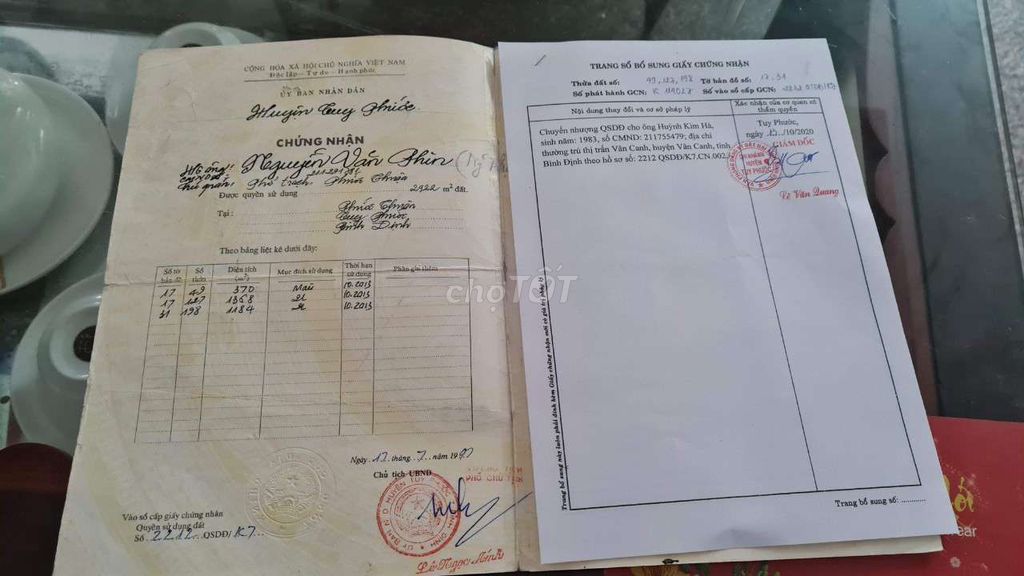 CỘNG HÒA XÃ HỘI CHỦ NGHĨA VIỆT NAM
Độc lập - Tự do - Hạnh phúc
ỦY BAN NHÂN DÂN
Huyện Tuy Phước
CHỨNG NHẬN
Nguyễn Văn Phin
Phước Thuận
2922 m² đất
Được quyền sử dụng
Tại : Phước Thuận
Tuy Phước
Bình Định
Theo bảng liệt kê dưới đây:
Số tờ bản đồ Số thửa Diện tích (m²) Mục đích sử dụng Thời hạn sử dụng Phần ghi thêm
17 49 370 Màu 10.2013
17 127 1368 10.2013
31 198 1184 10.2013
Ngày 17 tháng 7 năm 1997
Chủ tịch UBND
Lê Ngọc
Vào sổ cấp giấy chứng nhận
Quyền sử dụng đất
Số 2212 QSDĐ/ K7
TRANG SỐ BỔ SUNG GIẤY CHỨNG NHẬN
Thửa đất số: 49, 127, 198 Tờ bản đồ số: 17.31
Số phát hành GCN: Số vào sổ cấp GCN: 2212
Nội dung thay đổi và cơ sở pháp lý
Xác nhận của cơ quan có thẩm quyền
Chuyển nhượng QSDĐ cho ông Huỳnh Kim Hà,
sinh năm: 1983, số CMND: 211755479; địa chỉ
thường trú thị trấn Vân Canh, huyện Vân Canh, tỉnh
Bình Định theo hồ sơ số: 2212 QSDĐ/K7.CN.002
Tuy Phước,
ngày 15/10/2020
GIÁM ĐỐC
Lê Văn Quang
Trang bổ sung này luôn phải đính kèm Giấy chứng nhận mới có giá trị pháp lý
Trang bổ sung số: ............
chợ TỐT